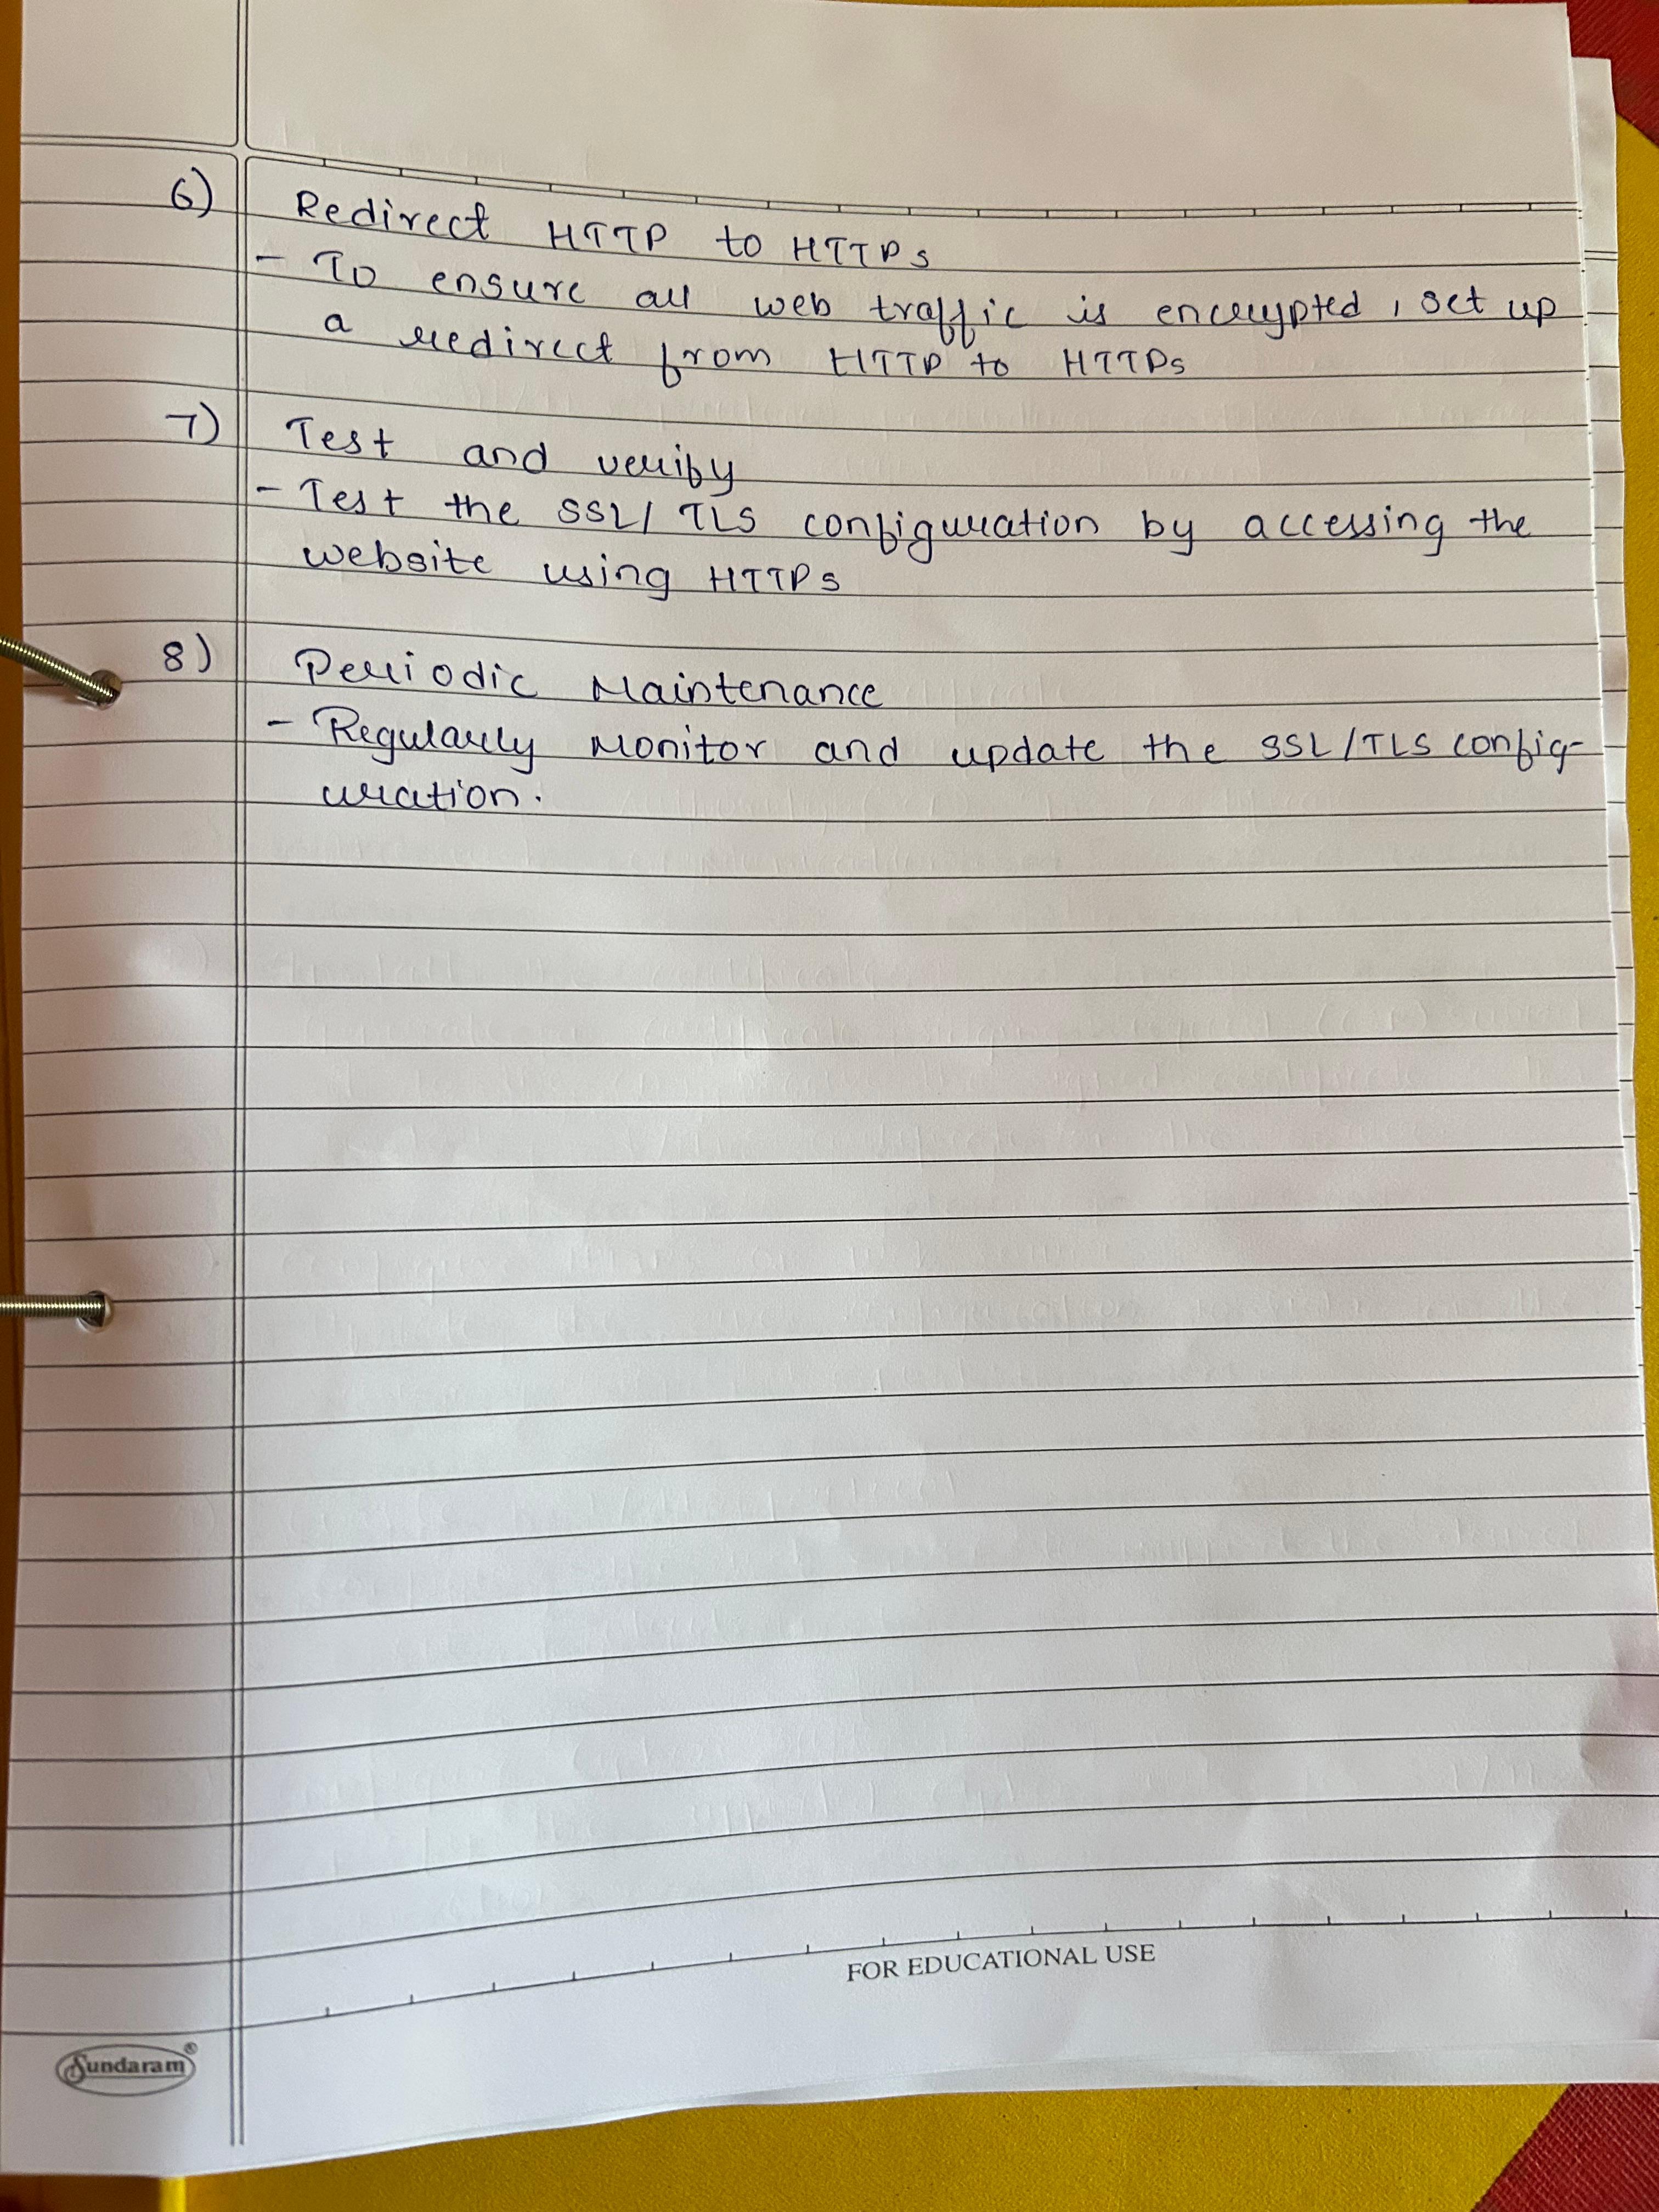 6) Redirect HTTP to HTTPs
- To ensure all web traffic is encrypted, set up
a redirect from HTTP to HTTPs
7) Test and verify
- Test the SSL/ TLS configuration by accessing the
website using HTTPs
8) Periodic Maintenance
- Regularly Monitor and update the SSL/TLS config-
uration.
FOR EDUCATIONAL USE
Sundaram®